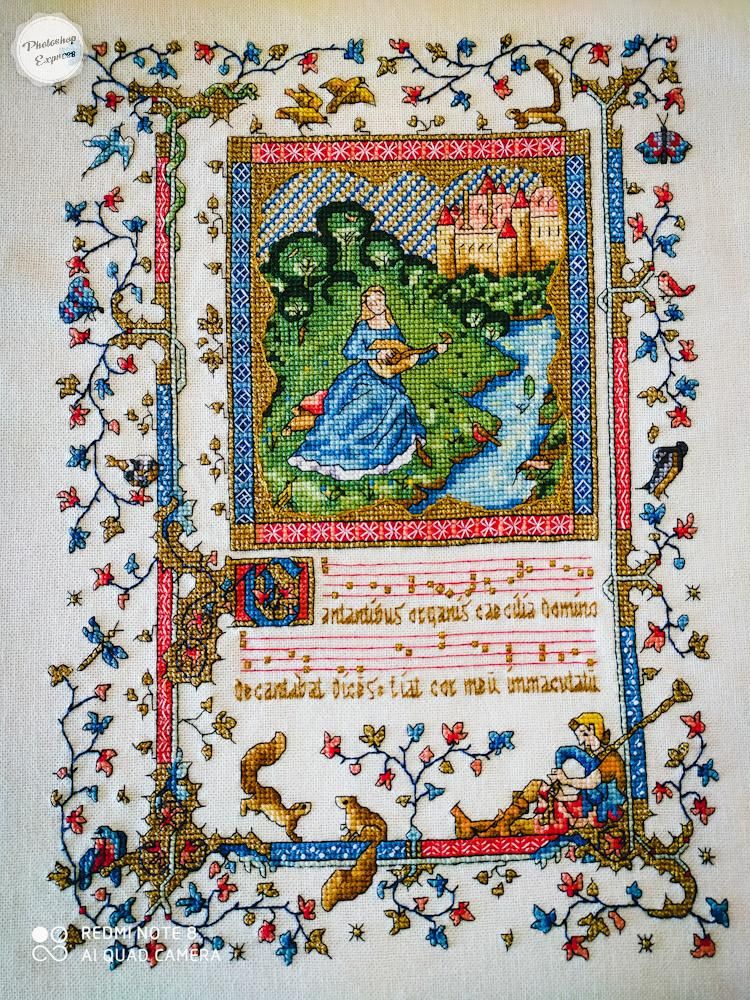 Photoshop
Express
Cantantibus organis caecilia domino
decantabat dicēs: fiat cor meū immaculatū
REDMI NOTE 8
AI QUAD CAMERA